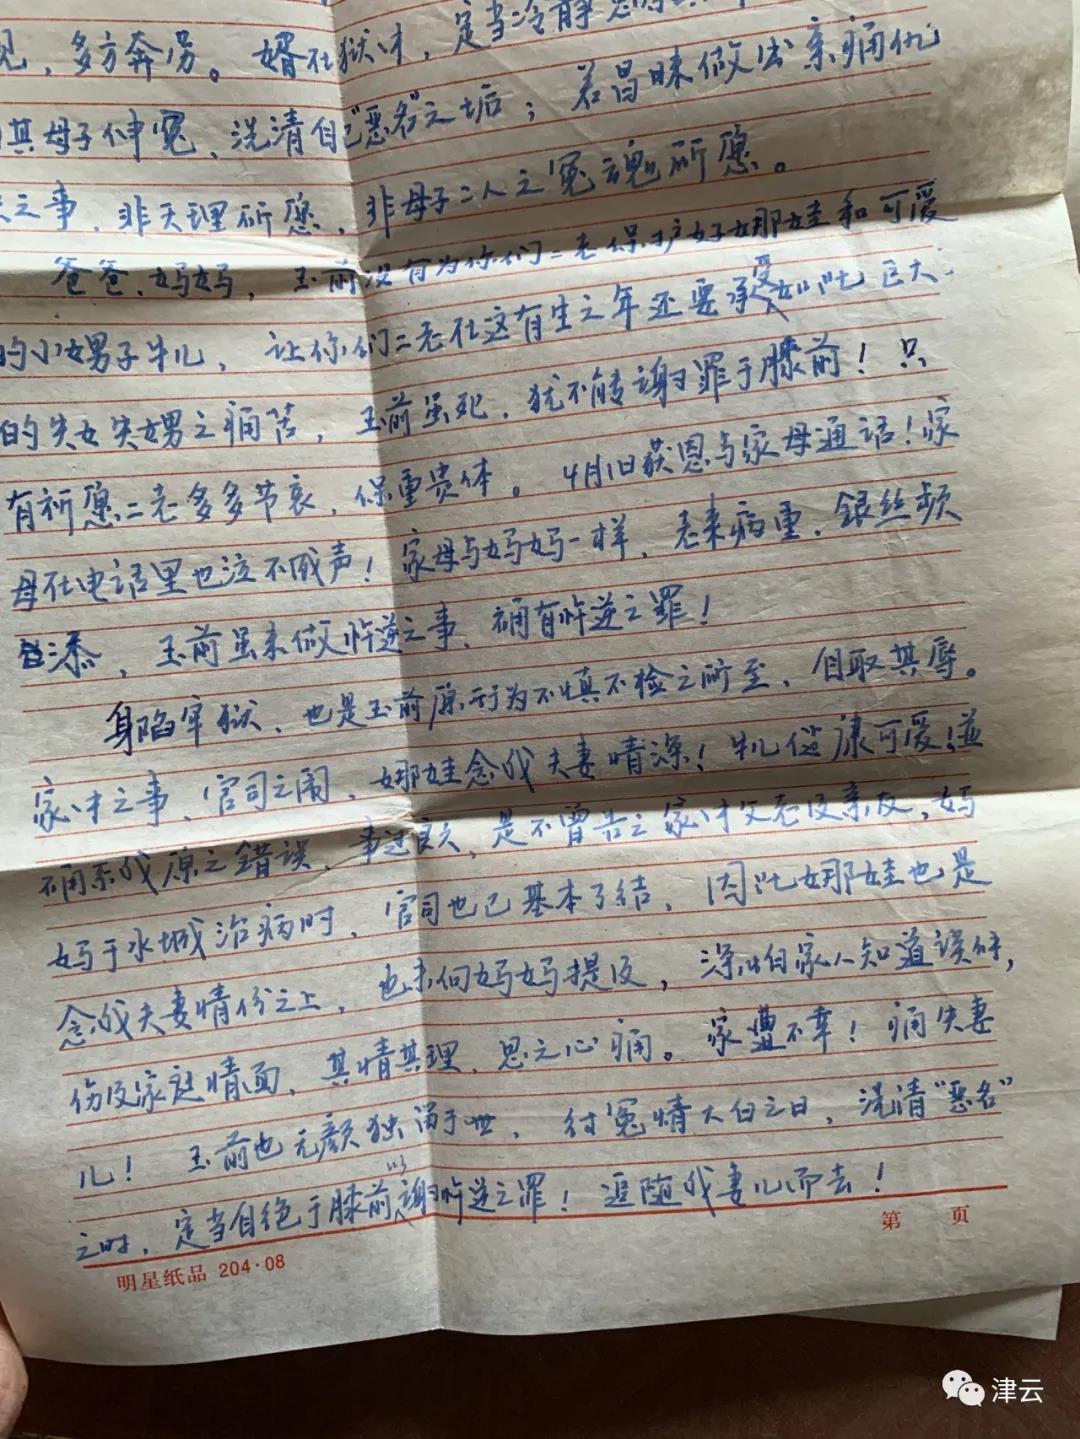 见，多方奔劳。婿在狱中，定当冷静思
其母子伸冤、洗清自己"恶名"之垢；若昌昧做出亲痛仇
之事，非天理所愿，非母子二人之冤魂所愿。
爸爸、妈妈，玉前没有为你们二老保护好娜娃和可爱
的小甥子牛儿，让你们二老在这有生之年还要承受如此巨大
的失女失甥之痛苦，玉前虽死，犹不能谢罪于膝前！只
有祈愿二老多多节哀，保重贵体。4月1日获恩与家母通话！家
母在电话里也泣不成声！家母与妈妈一样，老来病重，银丝频
添，玉前虽未做忤逆之事，确有忤逆之罪！
身陷牢狱，也是玉前原行为不慎不检之所至，自取其辱。
家中之事，官司之闹，娜娃念我夫妻情深！牛儿健康可爱！并
不闹系我原之错误，事过良久，是不曾告之家中父老及亲友，妈
妈于水城治病时，官司也已基本了结，因此娜娃也是
念我夫妻情份之上，也未向妈妈提及，深怕家人知道误解，
伤及家庭情面，其情其理，思之心痛。家遭不幸！痛失妻
儿！玉前也无颜独留于世，待冤情大白之日，洗清"恶名"
之时，定当自绝于膝前以谢忤逆之罪！追随我妻儿而去！
第 页
明星纸品 204·08
津云